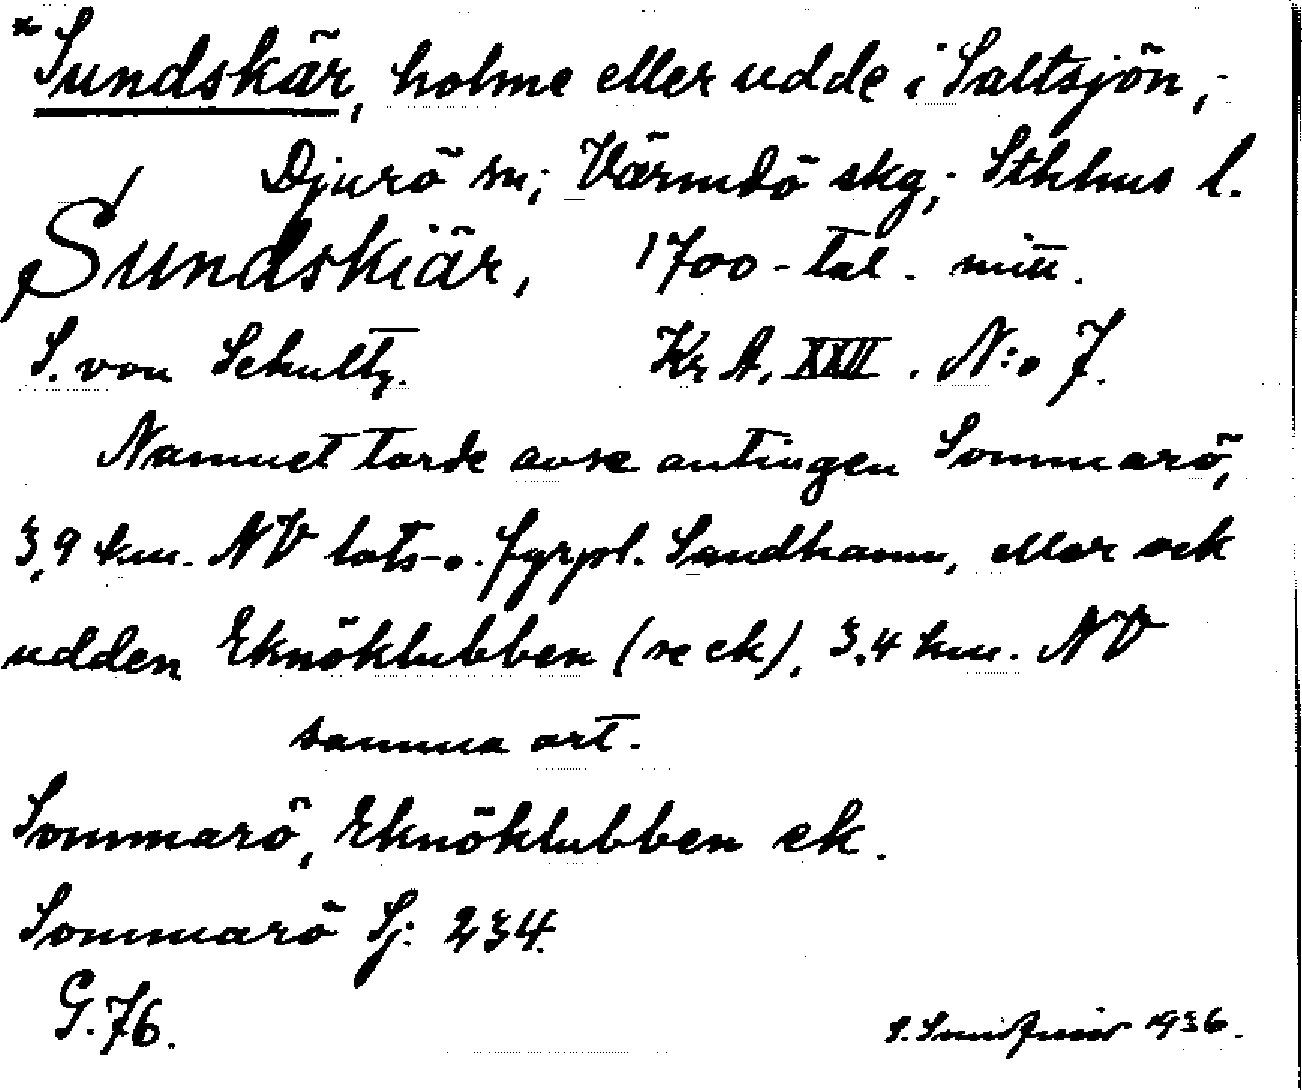 *Sundskär, holme eller udde i Saltsjön,
Djurö sn; Värmdö skg; Sthlms l.
Sundskiär, 1700-tal. mitt.
S. von Schultz. Kr. A. XXII. N:o 7.
Namnet torde avse antingen Sommarö,
3,9 km. NV lots- o. fyrpl. Sandhamn, eller ock
udden Eknöklubben (se ek), 3,4 km. NV
samma ort.
Sommarö, Eknöklubben ek.
Sommarö Sj. 234.
G. 76.
1936.